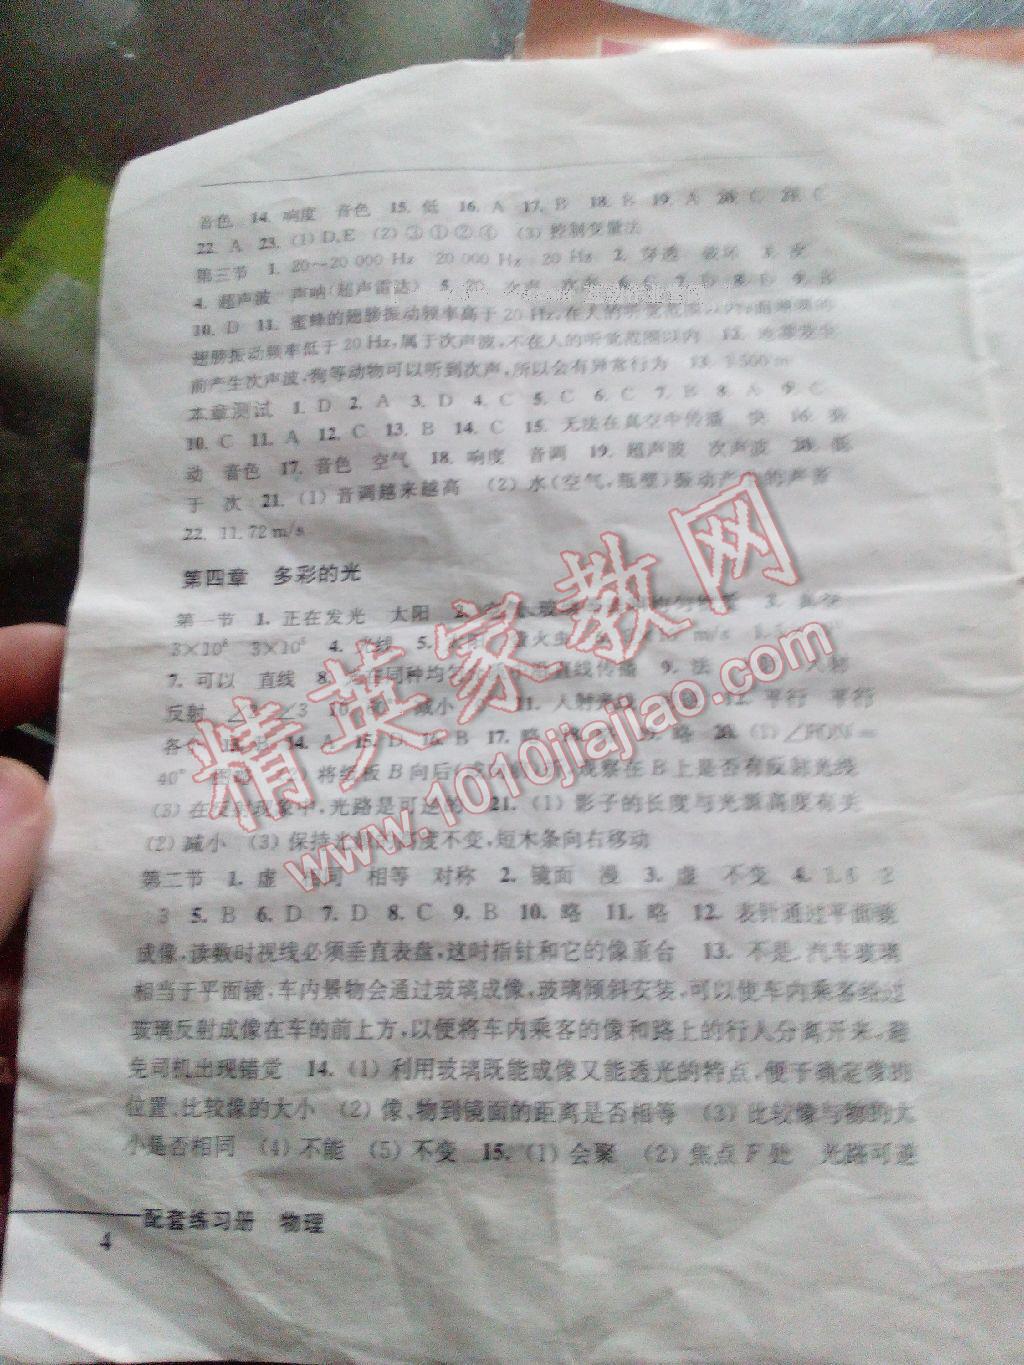 音色 14. 响度 音色 15. 低 16. A 17. B 18. B 19. A 20. C 21. C
22. A 23. (1) D、E (2) ③ ① ② ④ (3) 控制变量法
第三节 1. 20～20 000 Hz 20 000 Hz 20 Hz 2. 穿透 破坏 3.
4. 超声波 声呐(超声雷达) 5. 20 次声
10. D 11. 蜜蜂的翅膀振动频率高于 20 Hz,在人的听觉范围
翅膀振动频率低于 20 Hz,属于次声波,不在人的听觉范围以内 12. 地震发生
前产生次声波,狗等动物可以听到次声,所以会有异常行为 13. 1 500 m
本章测试 1. D 2. A 3. D 4. C 5. C 6. C 7. B 8. A 9. C
10. C 11. A 12. C 13. B 14. C 15. 无法在真空中传播 快 16. 振
动 音色 17. 音色 空气 18. 响度 音调 19. 超声波 次声波 20. 低
于 次 21. (1) 音调越来越高 (2) 水(空气,瓶壁)振动产生的声音
22. 11.72 m/s
第四章 多彩的光
第一节 1. 正在发光 太阳 2.
3×10⁸ 3×10⁵ 4. 光线 5.
7. 可以 直线 8. 在同种均匀介质中沿直线传播 9. 法
反射 ∠2 ∠3 10. 减小 11. 入射光线 12. 平行 平行
各 13. B 14. A 15. D 16. B 17. 略 18. 略 19. 略 20. (1) ∠FON=
40° 图略 (2) 将纸板 B 向后 观察在 B 上是否有反射光线
(3) 在反射现象中,光路是可逆的 21. (1) 影子的长度与光源高度有关
(2) 减小 (3) 保持光源的高度不变,短木条向右移动
第二节 1. 虚 相同 相等 对称 2. 镜面 漫 3. 虚 不变 4. 1.5 2
3 5. B 6. D 7. D 8. C 9. B 10. 略 11. 略 12. 表针通过平面镜
成像,读数时视线必须垂直表盘,这时指针和它的像重合 13. 不是,汽车玻璃
相当于平面镜,车内景物会通过玻璃成像,玻璃倾斜安装,可以使车内乘客经过
玻璃反射成像在车的前上方,以便将车内乘客的像和路上的行人分离开来,避
免司机出现错觉 14. (1) 利用玻璃既能成像又能透光的特点,便于确定像的
位置,比较像的大小 (2) 像、物到镜面的距离是否相等 (3) 比较像与物的大
小是否相同 (4) 不能 (5) 不变 15. (1) 会聚 (2) 焦点 F 处 光路可逆
配套练习册 物理
4
精英家教网
www.1010jiajiao.com